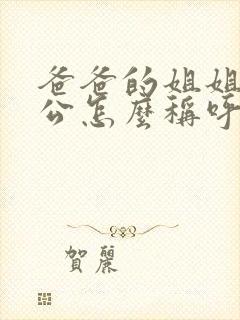 爸爸的姐姐
公怎麼稱呼
賀麗